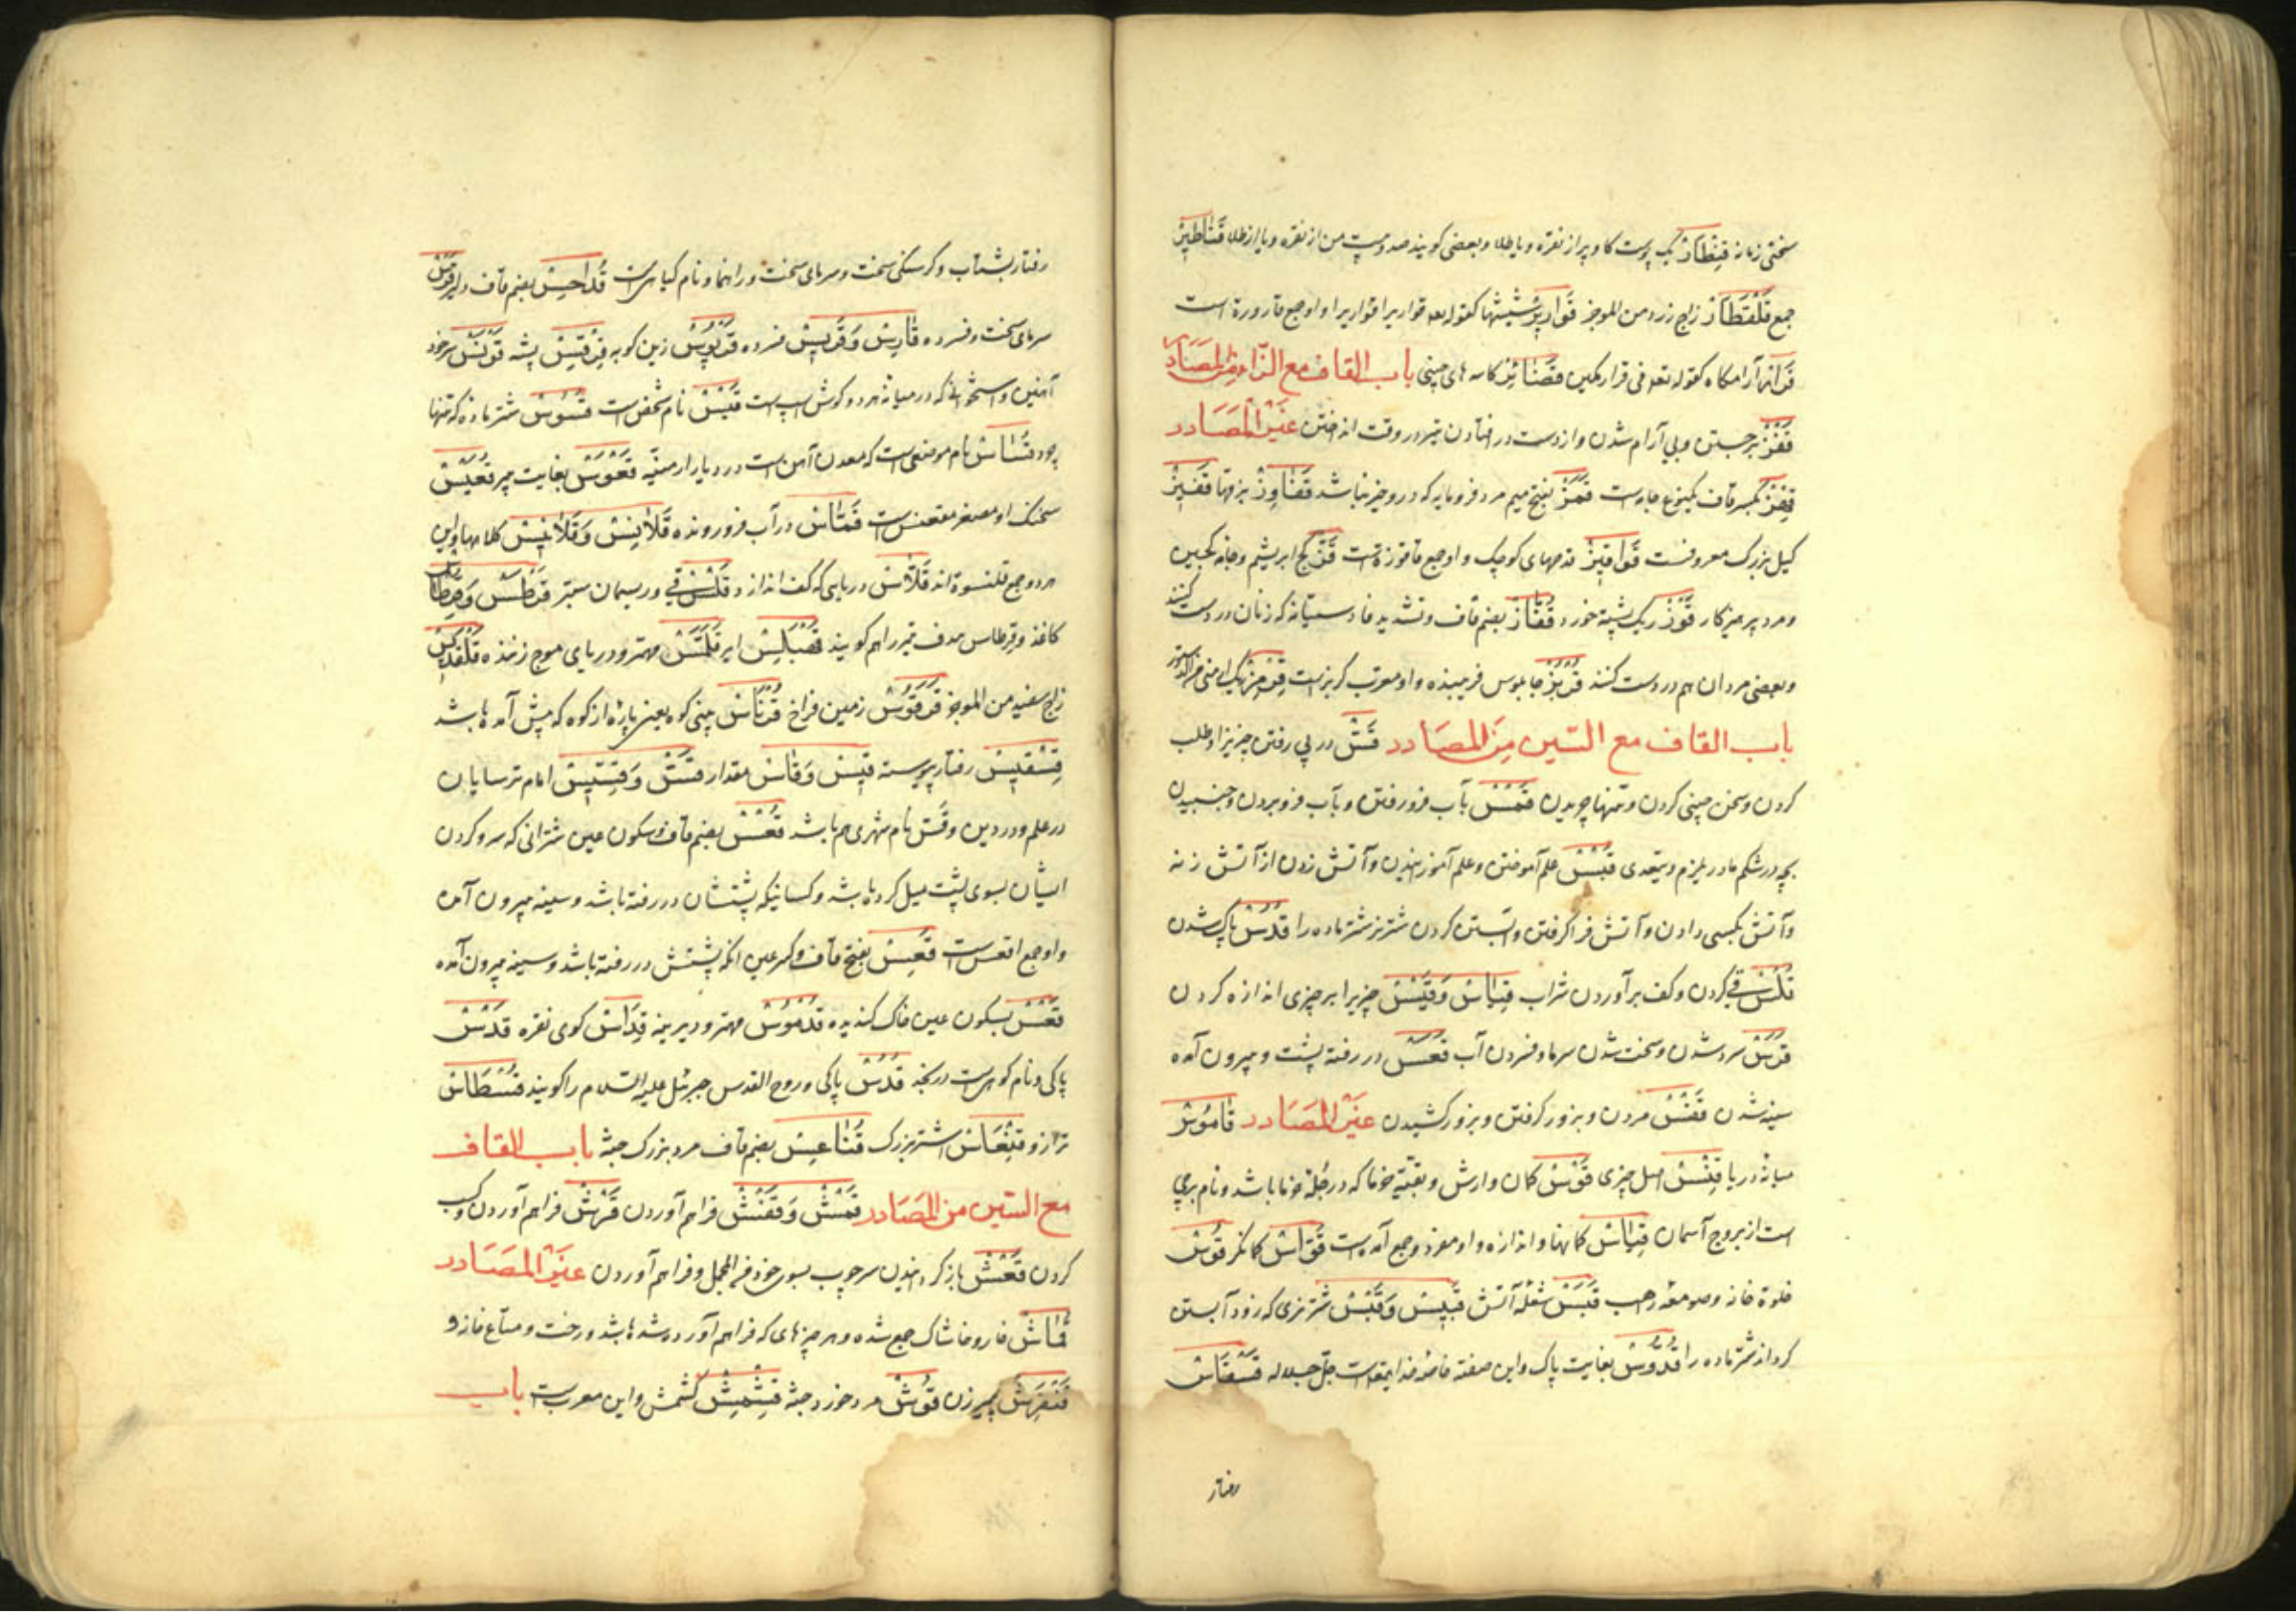 سختی زمانه قِنْطَارْ یک پوست کاو پر از نقره و یا طلا و بعضی کویند صد و بیست من از نقره و یا از طلا قَنَاطِیرْ
جمع قَلْقَطَارْ زاج زرد من الموجز قَوَارِیرْ شیشها کقوله تعه قواریرا قواریرا و او جمع قارورة است
قَرَارْ آرامکاه کقوله تعه فی قرار مکین کاسه های چینی باب القاف مع الزّاء من المصَادر
قَفْزْ برجستن و بی آرام شدن و از دست در افتادن تیر در وقت انداختن غَیْر المصَادر
بکسر قاف یکنوع جامه است قَمَزْ بفتح میم مرد فرومایه که درو خیر نباشد بزغها قَفِیزْ
کیل بزرک معروفست قَوَاقِیزْ قدحهای کوچک و او جمع قاقوزة است قَزْ کج ابریشم و جامه کجین
و مرد پرهیزکار قَوْزْ ریک پشته خورد قُفَّازْ بضم قاف و تشدید فا دستیانه که زنان در دست کنند
و بعضی مردان هم در دست کنند قُرْبُزْ جابلوس فریبنده و او معرّب کربز است قِرْمِزْ
باب القاف مع السّین مِنَ المصَادر قَسّْ در پی رفتن چیزیرا و طلب
کردن و سخن چینی کردن و تنها چریدن قَمْسْ بآب فرو رفتن و بآب فرو بردن و جنبیدن
بچه در شکم مادر یلزم و یتعدی قَبْسْ علم آموختن و علم آموزانیدن و آتش زدن از آتش زنه
و آتش بکسی دادن و آتش فرا کرفتن و آبستن کردن شتر نر شتر ماده را قُدْسْ پاک شدن
قَلْسْ قی کردن و کف برآوردن شراب قِیَاسْ وَقَیْسْ چیزیرا بر چیزی اندازه کردن
قَرْسْ سرد شدن و سخت شدن سرما و فسردن آب قَعَسْ در رفته پشت و بیرون آمده
سینه شدن قَفْسْ مردن و بزور کرفتن و بزور کشیدن غَیْر المصَادر قَامُوسْ
میانهٔ دریا قِنْسْ اصل چیزی قَوْسْ کمان و ارش و بقیّه خرما که در جلّهٔ خرما باشد و نام برجی
است از بروج آسمان قِیَاسْ کمانها و اندازه و او مفرد و جمع آمده است قَوَّاسْ کمانکر قُوسْ
خلوة خانه و صومعهٔ راهب قَبَسْ شعلهٔ آتش قَبِیسْ وَقَبْسْ شتر نری که زود آبستن
کرداند شتر ماده را قُدُّوسْ بغایت پاک و این صفته خاصهٔ خدایتعه است جلّ جلاله قَسْقَاسْ
رفتار
رفتار بشتاب و کرسنکی سخت و سرمای سخت و راه نما و نام کیاهی است قُدَاحِسْ بضم قاف دلیر قَرْسْ
سرمای سخت و فسرده قَارِسْ وَقَرِیسْ فسرده قَرَبُوسْ زین کوبه قِرْقِسْ پشه قَوْنَسْ سر خود
آهنین و استخوانی که در میانهٔ هر دو کوش اسپ است قَیْسْ نام شخصی است قَسُوسْ شتر ماده که تنها
چرد قُسَاسْ نام موضعی است که معدن آهن است در دیار ارمنیّه قَعْوَسْ بغایت پیر قُعَیْسْ
سخنک او مصغر مقعنس است قَمَّاسْ در آب فرو رونده قَلَانِسْ وَقَلَانِیسْ کلاهها و این
هر دو جمع قلنسوة اند قَلَّاسْ دریایی که کف اندازد قَلْسْ قی و ریسمان ستبر قَرْطَسْ وَقِرْطَاسْ
کاغذ و قرطاس هدف تیر را هم کویند ایر قَلَمَّسْ مهتر و دریای موج زننده
زاج سفید من الموجز قَرَقُوسْ زمین فراخ قُرْنَاسْ بینی کوه یعنی پارهٔ از کوه که پیش آمده باشد
رفتار پیوسته قِیسْ وَقَاسْ مقدار قَسّْ وَقِسِّیسْ امام ترسایان
در علم و در دین و قَسّ نام شهری هم باشد قُعْسْ بضم قاف و سکون عین شترانی که سر و کردن
ایشان بسوی پشت میل کرده باشد و کسانیکه پشتشان در رفته باشد و سینه بیرون آمده
و او جمع اقعس است قَعِسْ بفتح قاف و کسر عین آنکه پشتش در رفته باشد و سینه بیرون آمده
قَعْسْ بسکون عین خاک کندیده قُدْمُوسْ مهتر و دیرینه قُدَاسْ کوی نقره قُدْسْ
پاکی و نام کوهی است در نجد قُدُسْ پاکی و روح القدس جبرئل علیه السّلام را کویند قُسْطَاسْ
ترازو قِنْعَاسْ اشتر بزرک قُنَاعِسْ بضم قاف مرد بزرک جثّه باب القاف
مع الشین من المصَادر قَمْشْ وَقَفْشْ فراهم آوردن قَرْشْ فراهم آوردن و کسب
کردن قَعْشْ باز کردانیدن سر چوب بسوی خود فی المجمل و فراهم آوردن غَیْر المصَادر
قُمَاشْ خار و خاشاک جمع شده و هر چیزهای که فراهم آورده شده باشد و رخت و متاع خانه و
پیر زن قُوشْ مرد خورد جثّه قِشْمِشْ کشمش و این معرب است باب